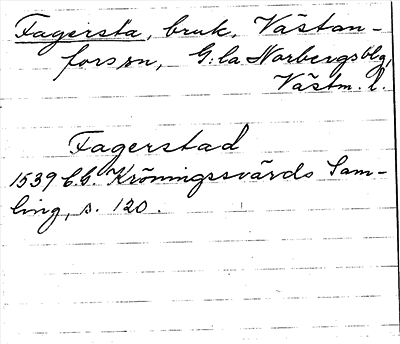 Fagersta, bruk, Västan-
fors sn, G:la Norbergs blg,
Västm. l.
Fagerstad
1539 C.G. Kröningssvärds Sam-
ling, s. 120.